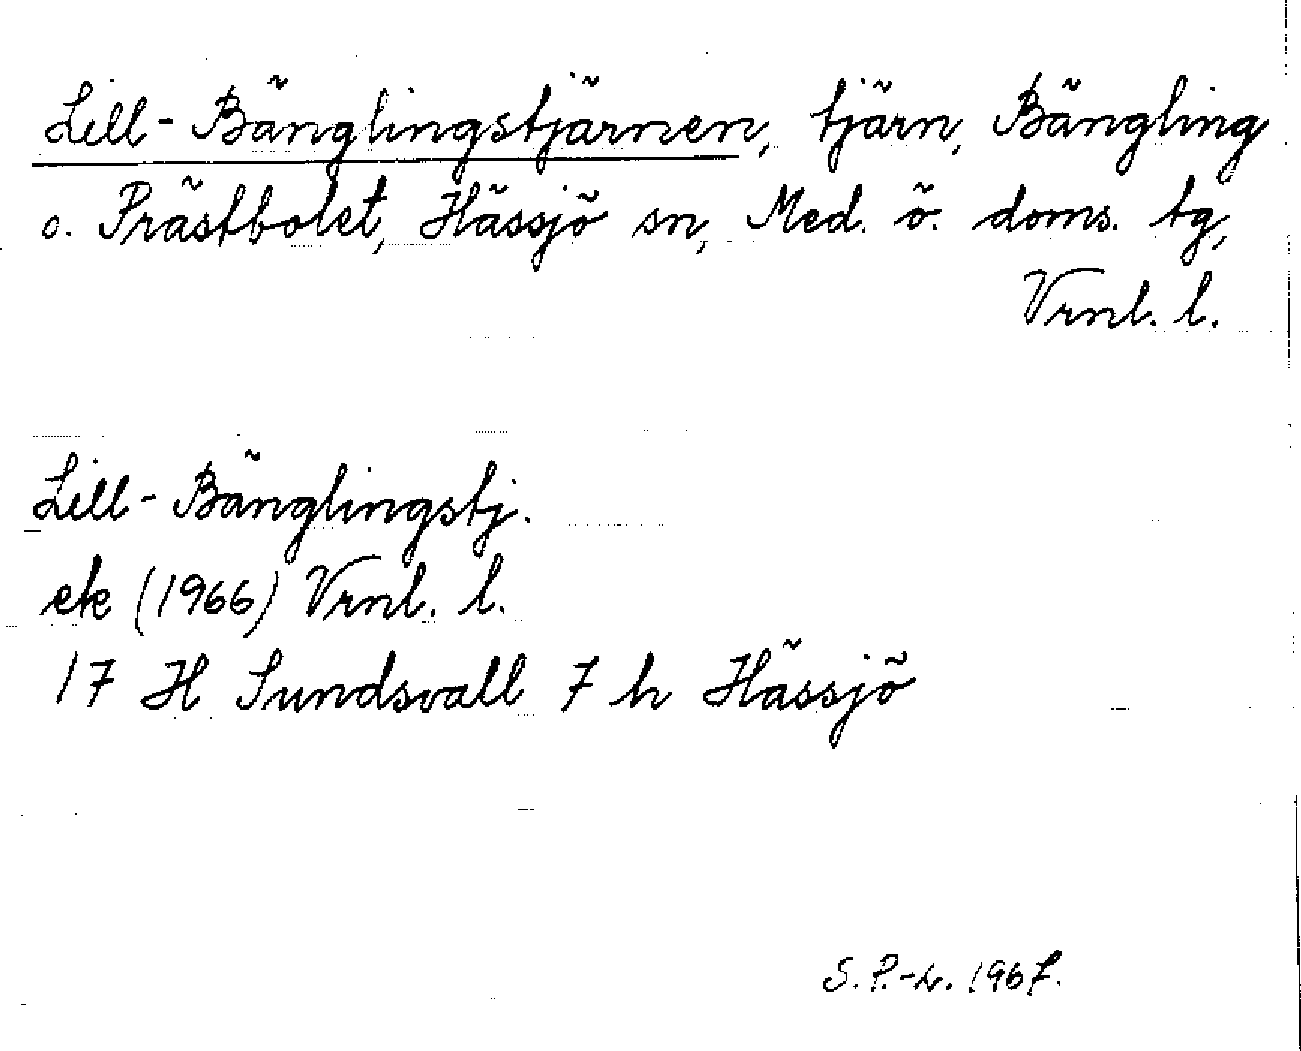 Lill-Bänglingstjärnen, tjärn, Bängling
o. Prästbolet, Hässjö sn, Med. ö. doms. tg,
Vrnl. l.
Lill-Bänglingstj.
ek (1966) Vrnl. l.
17 H Sundsvall 7 h Hässjö
S. P.-L. 1967.